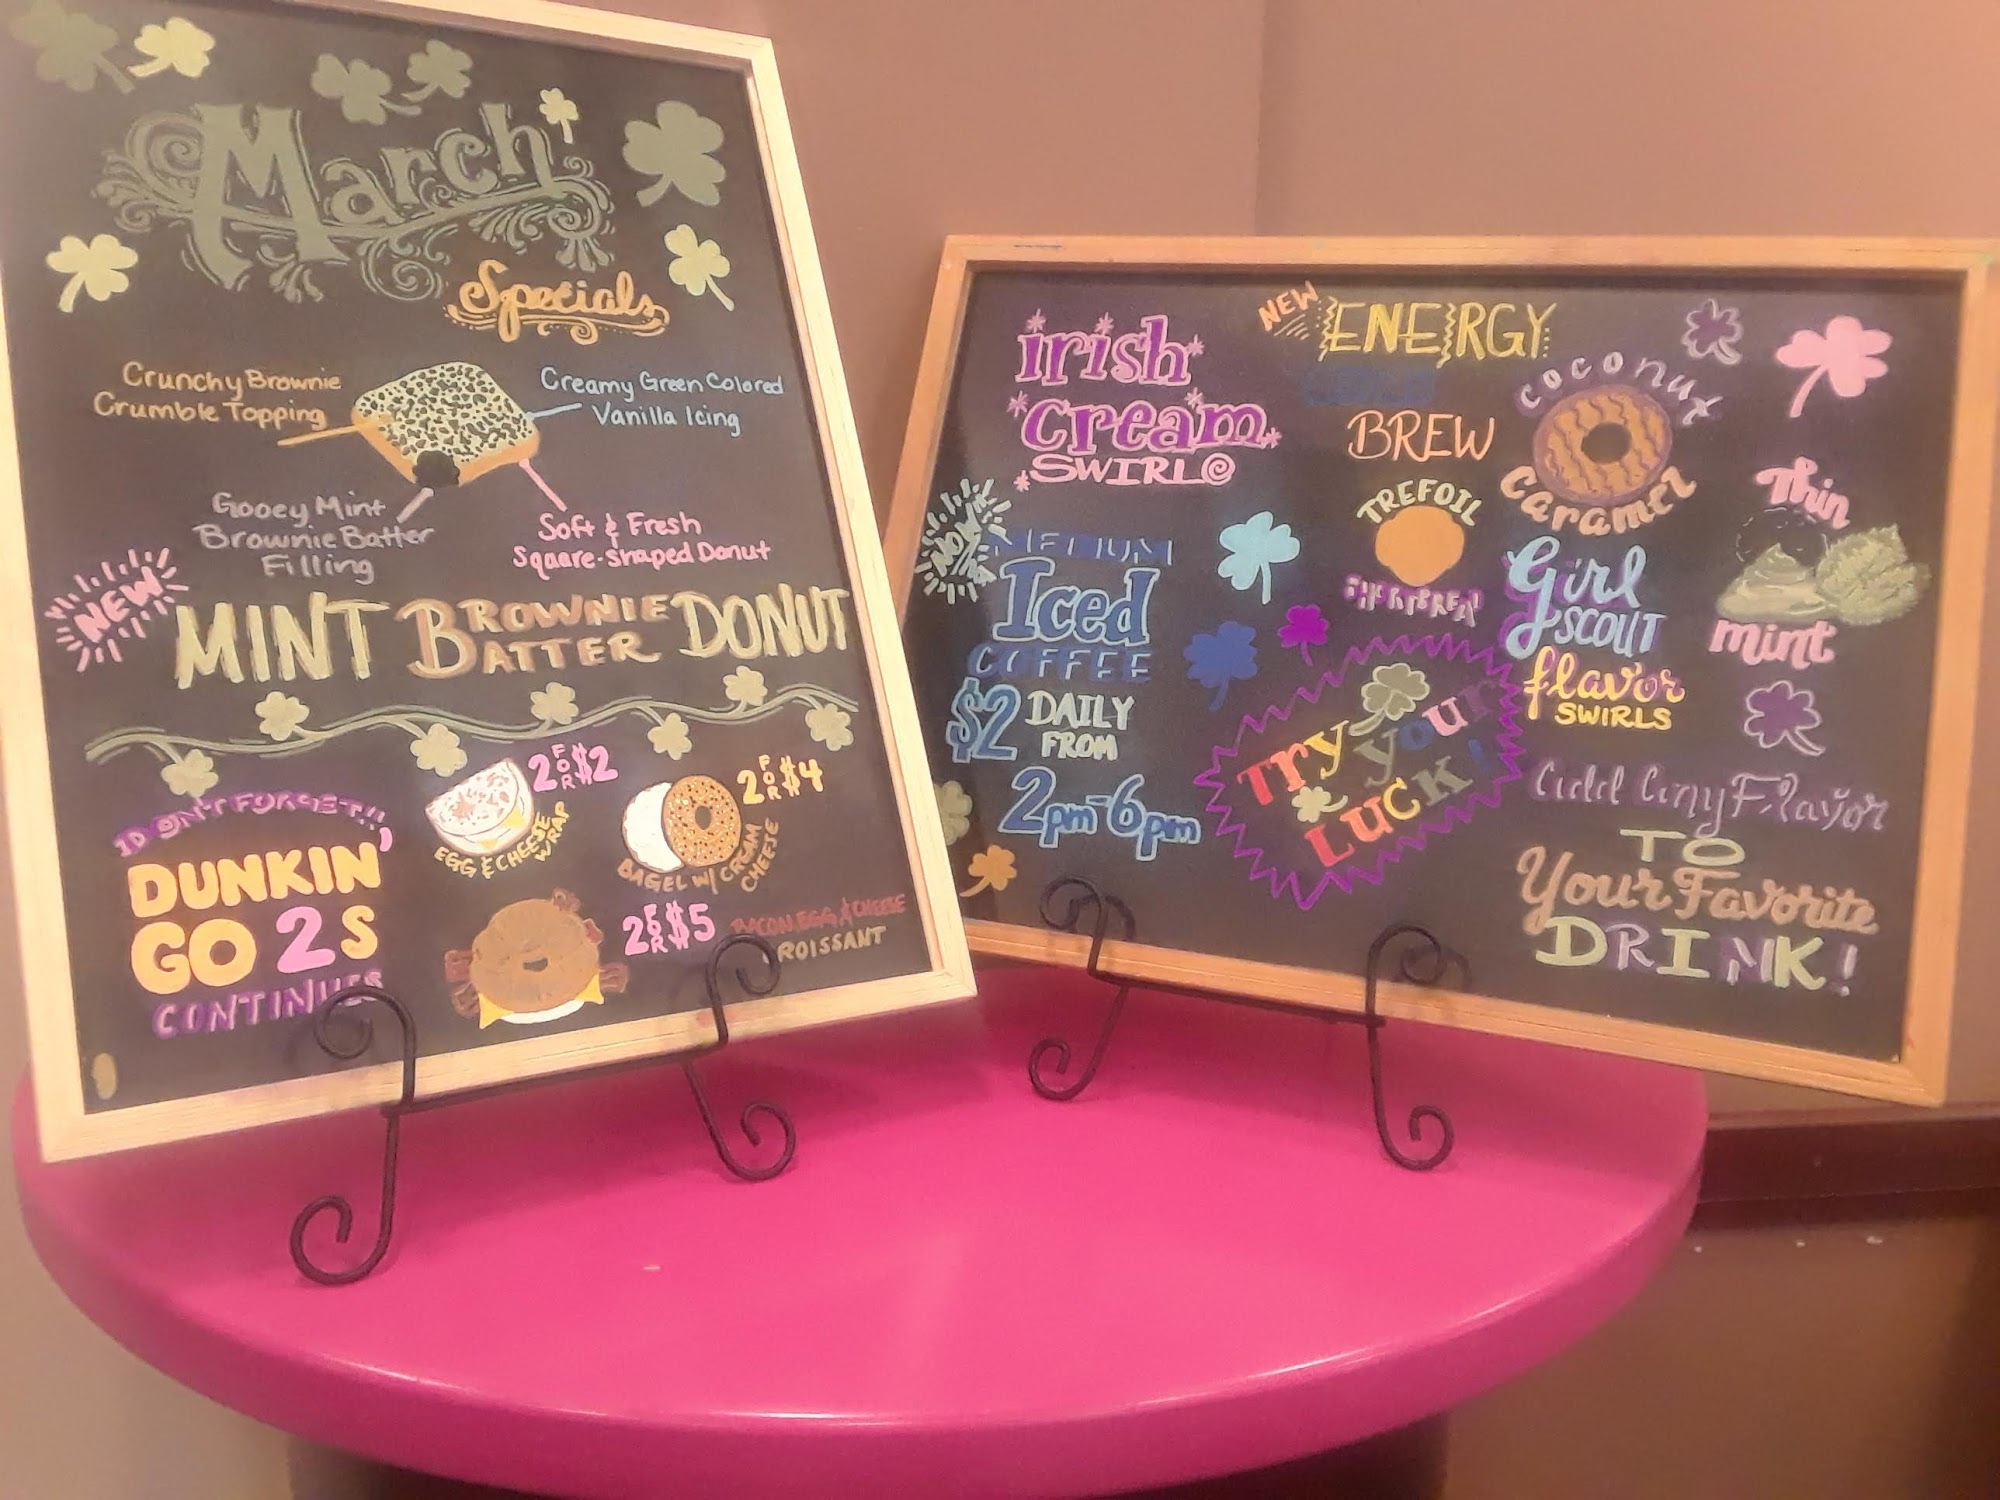 March
Specials
Crunchy Brownie
Crumble Topping
Creamy Green Colored
Vanilla Icing
Gooey Mint
Brownie Batter
Filling
Soft & Fresh
Square-shaped Donut
NEW
MINT BROWNIE BATTER DONUT
DON'T FORGET!!!
DUNKIN'
GO 2s
CONTINUES
2 FOR $2
EGG & CHEESE WRAP
2 FOR $4
BAGEL W/ CREAM CHEESE
2 FOR $5
BACON, EGG & CHEESE
CROISSANT
irish
cream
SWIRL
NEW
ENERGY
BREW
NOW
MEDIUM
Iced
COFFEE
$2 DAILY
FROM
2pm-6pm
TREFOIL
SHORTBREAD
coconut
caramel
Thin
mint
Girl
SCOUT
flavor
SWIRLS
Try your
LUCK!
Add Any Flavor
TO
Your Favorite
DRINK!